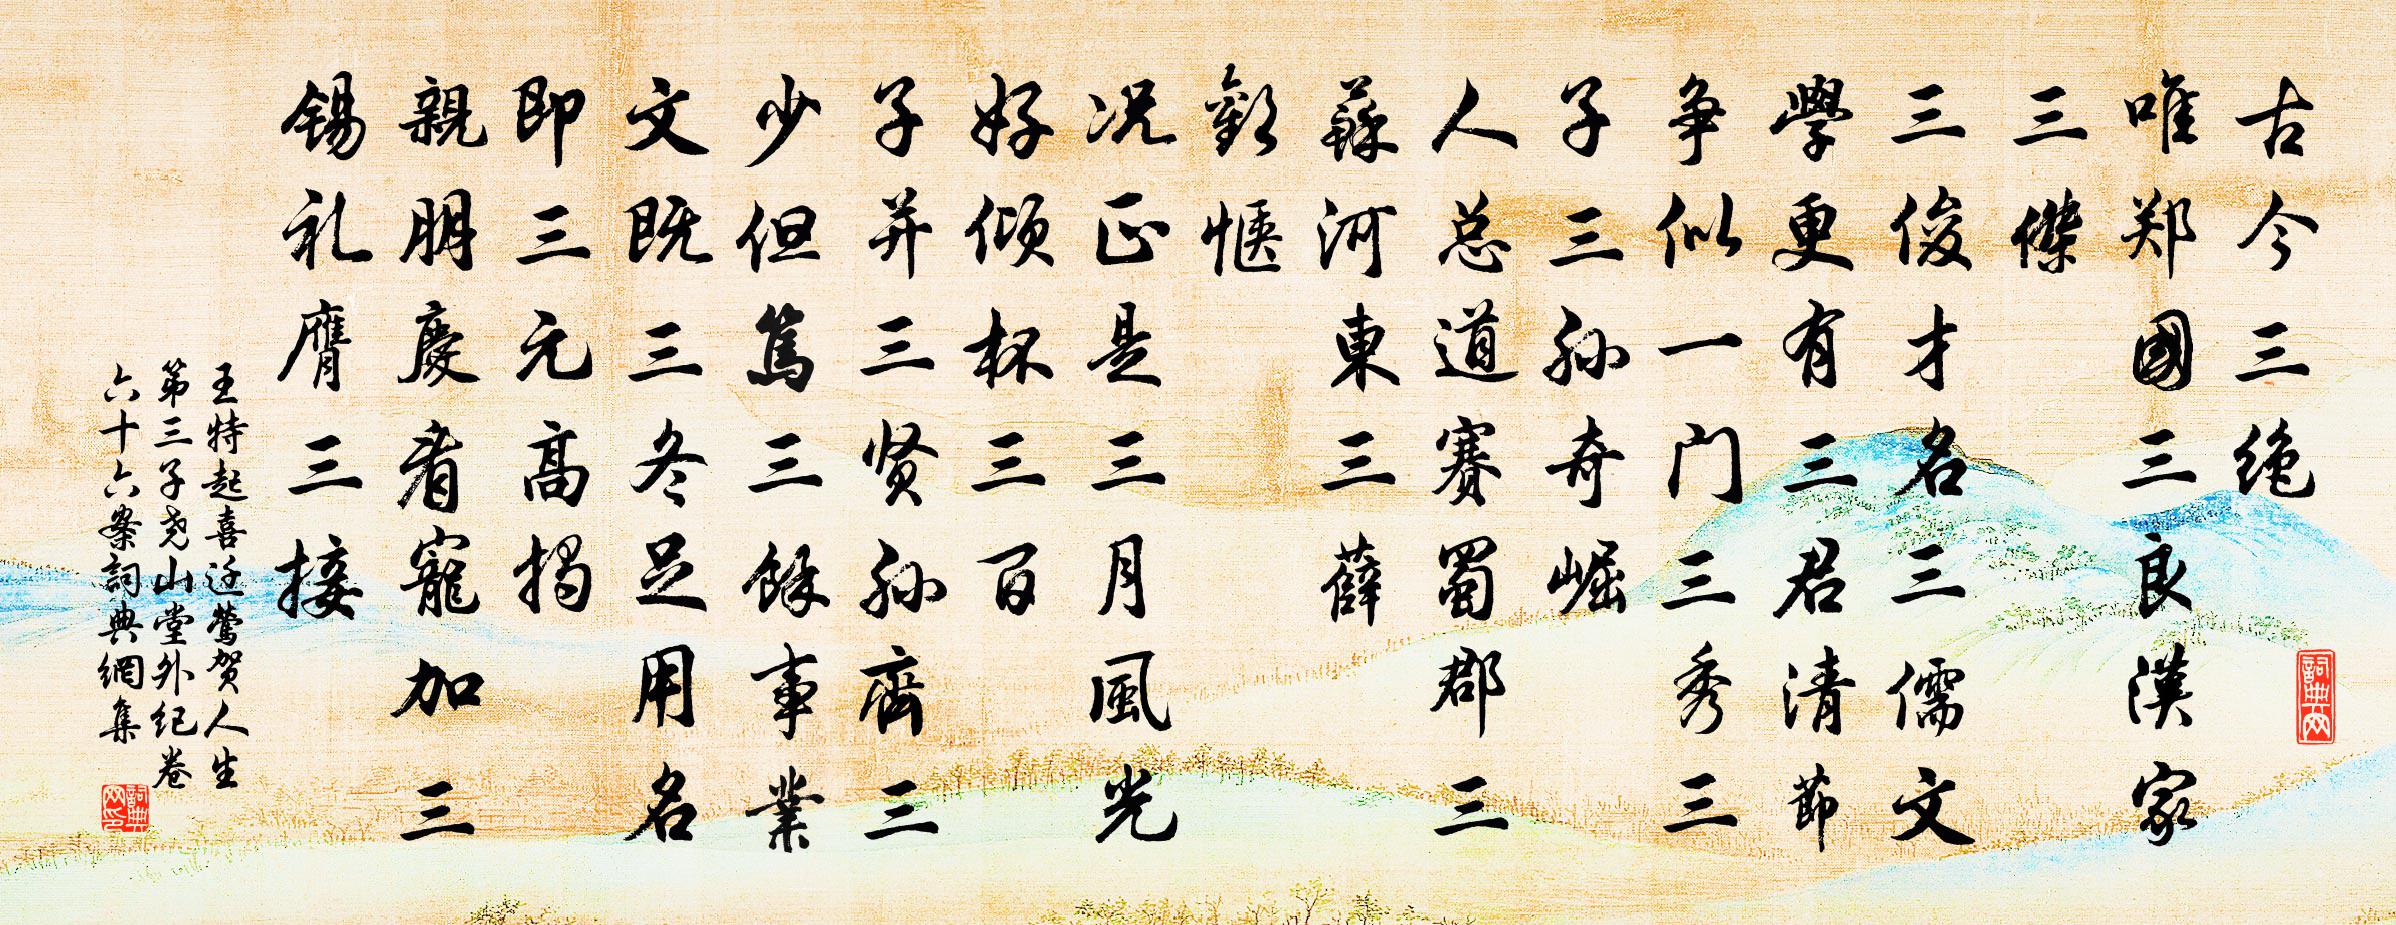 古今三绝
唯郑國三良漢家
三傑
三俊才名三儒文
學更有三君清節
争似一门三秀三
子三孙奇崛
人总道赛蜀郡三
蘇河東三薛
歡惬
况正是三月風光
好倾杯三百
子并三贤孙齊三
少但篤三餘事業
文既三冬足用名
即三元高揭
親朋慶看寵加三
錫礼膺三接
王特起喜迁鶯贺人生
第三子尧山堂外紀卷
六十六案詞典網集
詞典网
詞典网印